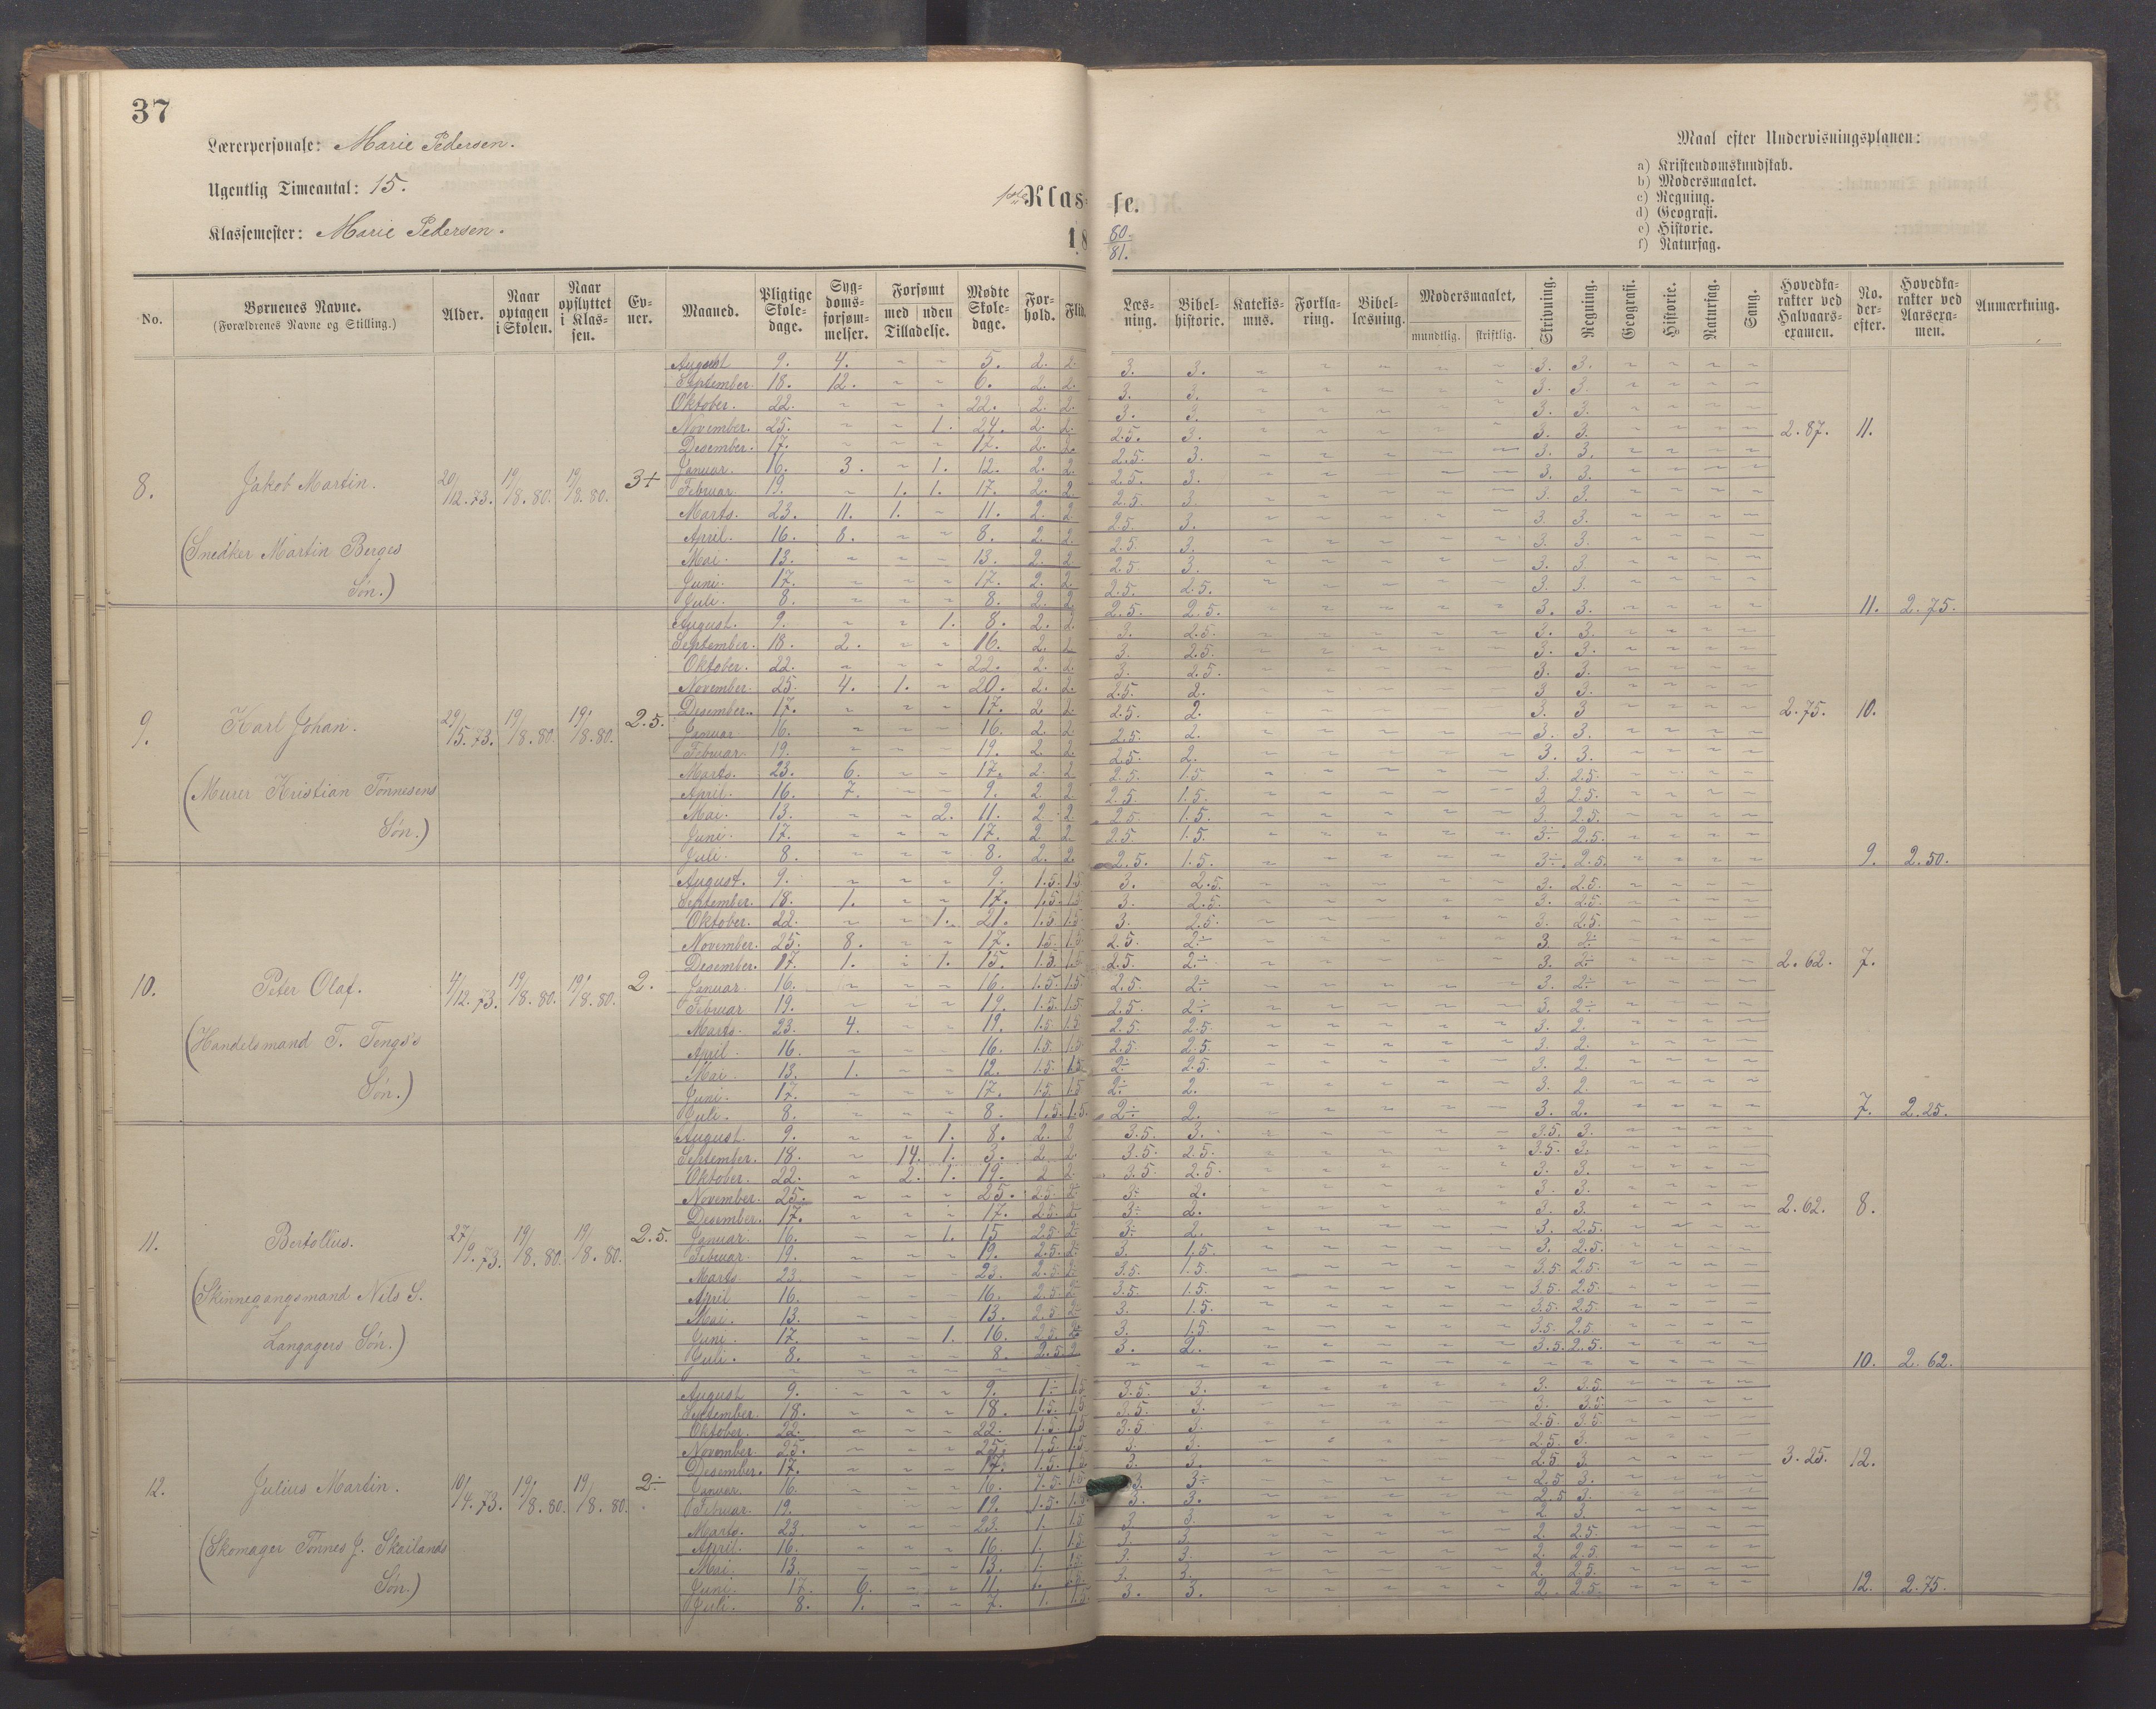 37
Lærerpersonale: Marie Pedersen.
Ugentlig Timeantal: 15.
Klassemester: Marie Pedersen.
1ste Klasse.
1880/81.
Maal efter Undervisningsplanen:
a) Kristendomskundskab.
b) Modersmaalet.
c) Regning.
d) Geografi.
e) Historie.
f) Naturfag.
No. Børnenes Navne. (Forældrenes Navne og Stilling.) Alder. Naar optagen i Skolen. Naar opflyttet i Klassen. Evner. Maaned. Pligtige Skoledage. Sygdomsforsømmelser. Forsømt med uden Tilladelse. Mødte Skoledage. Forhold. Flid. Læsning. Bibelhistorie. Katekismus. Forklaring. Bibellæsning. Modersmaalet, mundtlig. skriftlig. Skrivning. Regning. Geografi. Historie. Naturfag. Sang. Hovedkarakter ved Halvaarsexamen. No. derefter. Hovedkarakter ved Aarsexamen. Anmærkning.
August 9. 4. ~ ~ 5. 2. 2. 3. 3. 3. 3.
September. 18. 12. ~ ~ 6. 2. 2. 3. 3. 3. 3.
Oktober. 22. ~ ~ ~ 22. 2. 2. 3. 3. 3. 3.
November. 25. ~ ~ 1. 24. 2. 2. 2.5. 3. 3. 3. 2.87. 11.
Desember. 17. ~ ~ ~ 17. 2. 2. 2.5. 3. 3. 3.
Januar. 16. 3. ~ 1. 12. 2. 2. 2.5. 3. 3. 3.
8. Jakob Martin. 20/12.73. 19/8.80. 19/8.80. 3+
Februar. 19. ~ 1. 1. 17. 2. 2. 2.5. 3. 3. 3.
Marts. 23. 11. 1. ~ 11. 2. 2. 2.5. 3. 3. 3.
April. 16. 8. ~ ~ 8. 2. 2. 2.5. 3. 3. 3.
(Snedker Martin Berges
Mai. 13. ~ ~ ~ 13. 2. 2. 2.5. 3. 3. 3.
Juni. 17. ~ ~ ~ 17. 2. 2. 2.5. 2.5. 3. 3.
Søn.)
Juli. 8. ~ ~ ~ 8. 2. 2. 2.5. 2.5. 3. 3. 11. 2.75.
August. 9. ~ ~ 1. 8. 2. 2. 3. 2.5. 3. 3.
September. 18. 2. ~ ~ 16. 2. 2. 3. 2.5. 3. 3.
Oktober. 22. ~ ~ ~ 22. 2. 2. 3. 2.5. 3. 3.
November. 25. 4. 1. ~ 20. 2. 2. 2.5. 2. 3. 3.
Desember. 17. ~ ~ ~ 17. 2. 2. 2.5. 2. 3. 3. 2.75. 10.
9. Karl Johan. 29/5.73. 19/8.80. 19/8.80. 2.5.
Januar. 16. ~ ~ ~ 16. 2. 2. 2.5. 2. 3. 3.
Februar. 19. ~ ~ ~ 19. 2. 2. 2.5. 2. 3. 3.
Marts. 23. 6. ~ ~ 17. 2. 2. 2.5. 1.5. 3. 2.5.
(Murer Kristian Tønnesens
April. 16. 7. ~ ~ 9. 2. 2. 2.5. 1.5. 3. 2.5.
Mai. 13. ~ ~ 2. 11. 2. 2. 2.5. 1.5. 3. 2.5.
Søn.)
Juni. 17. ~ ~ ~ 17. 2. 2. 2.5. 1.5. 3÷ 2.5.
Juli. 8. ~ ~ ~ 8. 2. 2. 2.5. 1.5. 3÷. 2.5. 9. 2.50.
August. 9. ~ ~ ~ 9. 1.5. 1.5 3. 2.5. 3. 2.5.
September. 18. 1. ~ ~ 17. 1.5. 1.5 3. 2.5. 3. 2.5.
Oktober. 22. ~ ~ 1. 21. 1.5. 1.5. 3. 2.5. 3. 2.5.
November. 25. 8. ~ ~ 17. 1.5. 1.5. 2.5. 2÷ 3. 2÷
Desember. 17. 1. ~ 1. 15. 1.5. 1.5 2.5. 2÷ 3. 2÷ 2.62. 7.
10. Peter Olaf. 4/12.73. 19/8.80. 19/8.80. 2.
Januar. 16. ~ ~ ~ 16. 1.5. 1.5. 2.5. 2÷ 3. 2÷
Februar. 19. ~ ~ ~ 19. 1.5. 1.5 2.5 2÷ 3. 2÷
Marts. 23. 4. ~ ~ 19. 1.5 1.5 2.5. 2.5. 3. 2.
(Handelsmand T. Tengs's
April. 16. ~ ~ ~ 16. 1.5. 1.5 2.5. 2.5. 3. 2.
Mai. 13. 1. ~ ~ 12. 1.5. 1.5. 2÷ 2.5. 3. 2.
Søn.)
Juni. 17. ~ ~ ~ 17. 1.5 1.5 2÷ 2. 3. 2.
Juli. 8. ~ ~ ~ 8. 1.5. 1.5. 2÷ 2. 3. 2. 7. 2.25.
August. 9. ~ ~ 1. 8. 2. 2 3.5. 3. 3.5. 3.
September. 18. ~ 14. 1. 3. 2. 2. 3.5. 2.5. 3.5. 3.
Oktober. 22. ~ 2. 1. 19. 2 2 3.5 2.5. 3. 3.
November. 25. ~ ~ ~ 25. 2.5. 2÷ 3÷ 2. 3. 3.
Desember. 17. ~ ~ ~ 17. 2.5. 2÷ 3÷ 2. 3. 3. 2.62. 8.
11. Bertolius. 27/9.73. 19/8.80. 19/8.80. 2.5.
Januar. 16. ~ ~ 1. 15 2.5 2÷ 3÷ 2. 3. 2.5.
Februar. 19. ~ ~ ~ 19. 2.5. 2÷ 3. 1.5. 3. 2.5.
Marts 23. ~ ~ ~ 23. 2.5 2÷ 3.5. 1.5. 3.5 2.5.
(Skinnegangsmand Nils S.
April 16. ~ ~ ~ 16. 2.5 2÷ 3.5. 1.5. 3.5 2.5.
Mai. 13. ~ ~ ~ 13. 2.5 2÷ 3. 1.5. 3.5. 2.5.
Langagers Søn.)
Juni. 17. ~ ~ 1. 16. 2.5. 2÷ 3. 1.5. 3.5. 2.5.
Juli. 8. ~ ~ ~ 8. 2.5 2 3. 2. 3.5. 2.5. 10. 2.62.
August 9. ~ ~ ~ 9. 1÷ 1.5 3.5. 3. 3. 3.5.
September. 18. ~ ~ ~ 18. 1.5. 1.5 3.5. 3. 3. 3.5.
Oktober. 22. ~ ~ ~ 22. 1.5 1.5 3.5 3. 2.5. 3.5.
November. 25. ~ ~ ~ 25. 1.5. 1.5. 3. 3. 2.5. 3.
Desember. 17. ~ ~ ~ 17. 1.5. 1.5 3. 3. 2.5 3. 3.25. 12.
12. Julius Martin. 10/4.73. 19/8.80. 19/8.80. 2÷
Januar. 16. ~ ~ ~ 16. 1.5. 1.5 3. 3÷ 2.5 3.
Februar. 19. ~ ~ ~ 19. 1.5. 1.5 3. 3. 2.5 3.
Marts. 23. ~ ~ ~ 23. 1. 1.5 3. 3. 2. 3.
(Skomager Tønnes J. Skailands
April. 16. ~ ~ ~ 16. 1. 1.5 3. 3. 2. 2.5.
Mai. 13. ~ ~ ~ 13. 1. 1.5 3. 3. 2. 2.5.
Søn.)
Juni. 17. 6. ~ ~ 11. 1. 1.5. 3. 3. 2. 2.5.
Juli. 8. 1. ~ ~ 7. 1. 1.5. 3. 3. 2. 2.5. 12. 2.75.